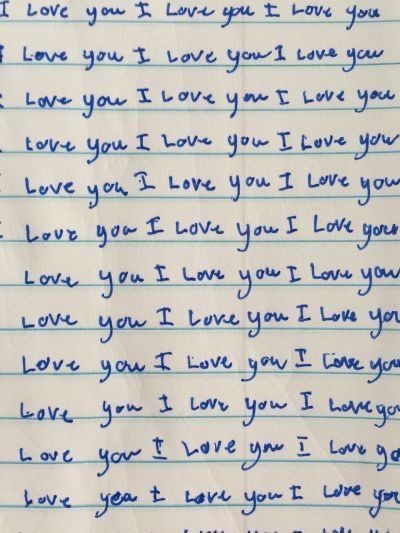 I Love you I Love you I Love you
I Love you I Love you I Love you
Love you I Love you I Love you
Love you I Love you I Love you
Love you I Love you I Love you
I Love you I Love you I Love you
Love you I Love you I Love you
Love you I Love you I Love you
Love you I Love you I Love you
Love you I Love you I Love you
Love you I Love you I Love
Love you I Love you I Love you